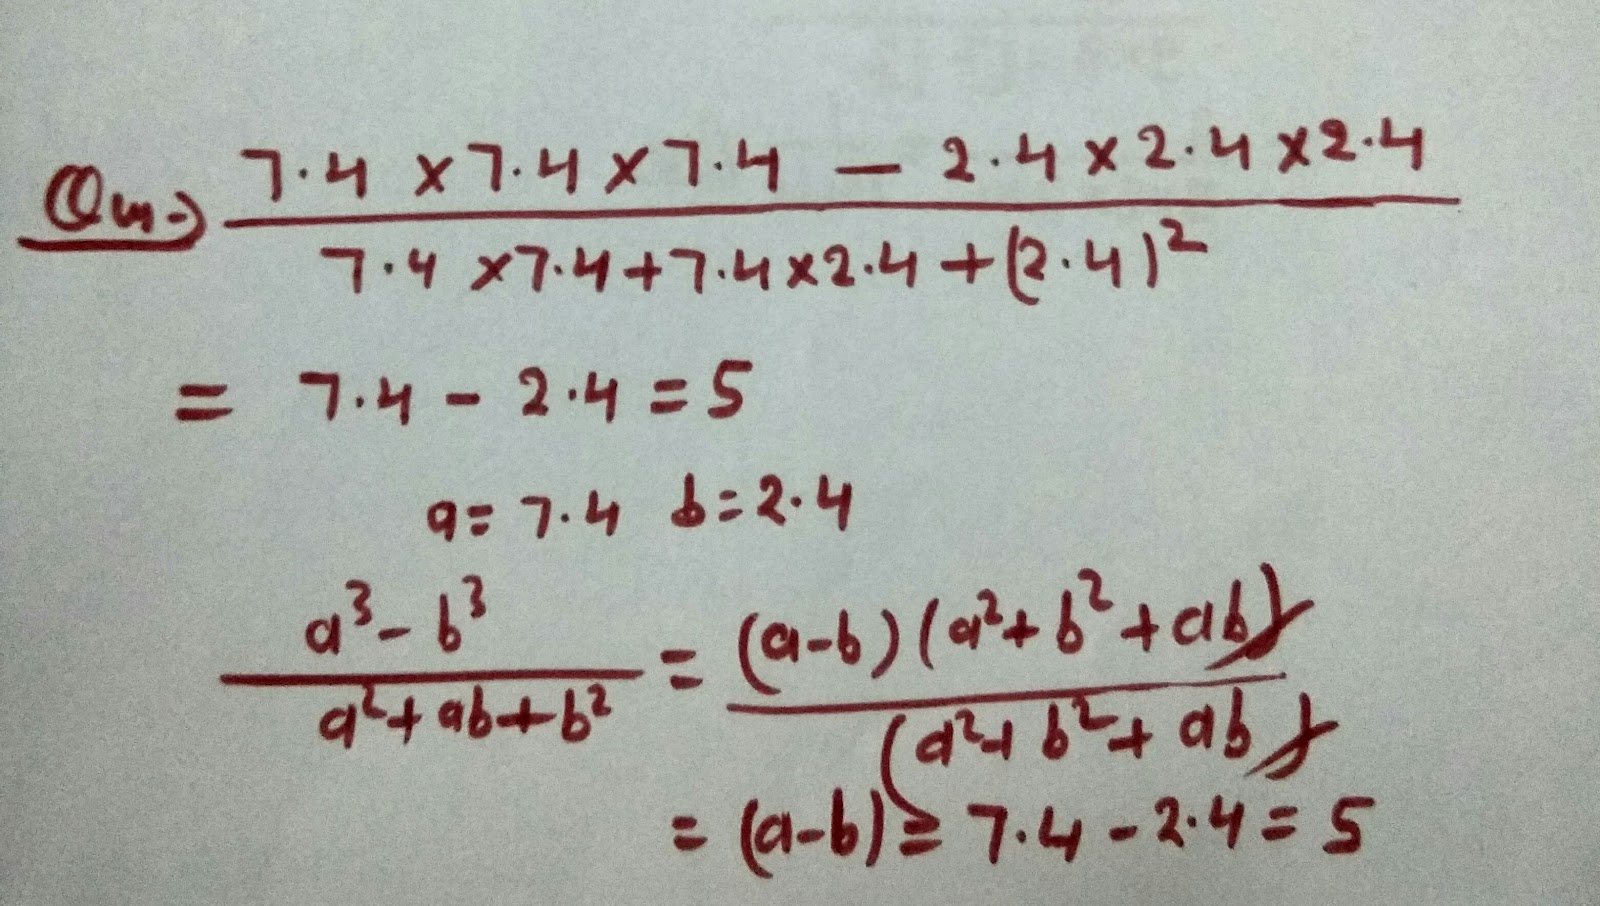 Qus→ 7.4 × 7.4 × 7.4 − 2.4 × 2.4 × 2.4
7.4 × 7.4 + 7.4 × 2.4 + (2.4)²
= 7.4 - 2.4 = 5
a = 7.4 b = 2.4
a³ - b³ = (a-b) (a² + b² + ab)
a² + ab + b² (a² + b² + ab)
= (a-b) = 7.4 - 2.4 = 5